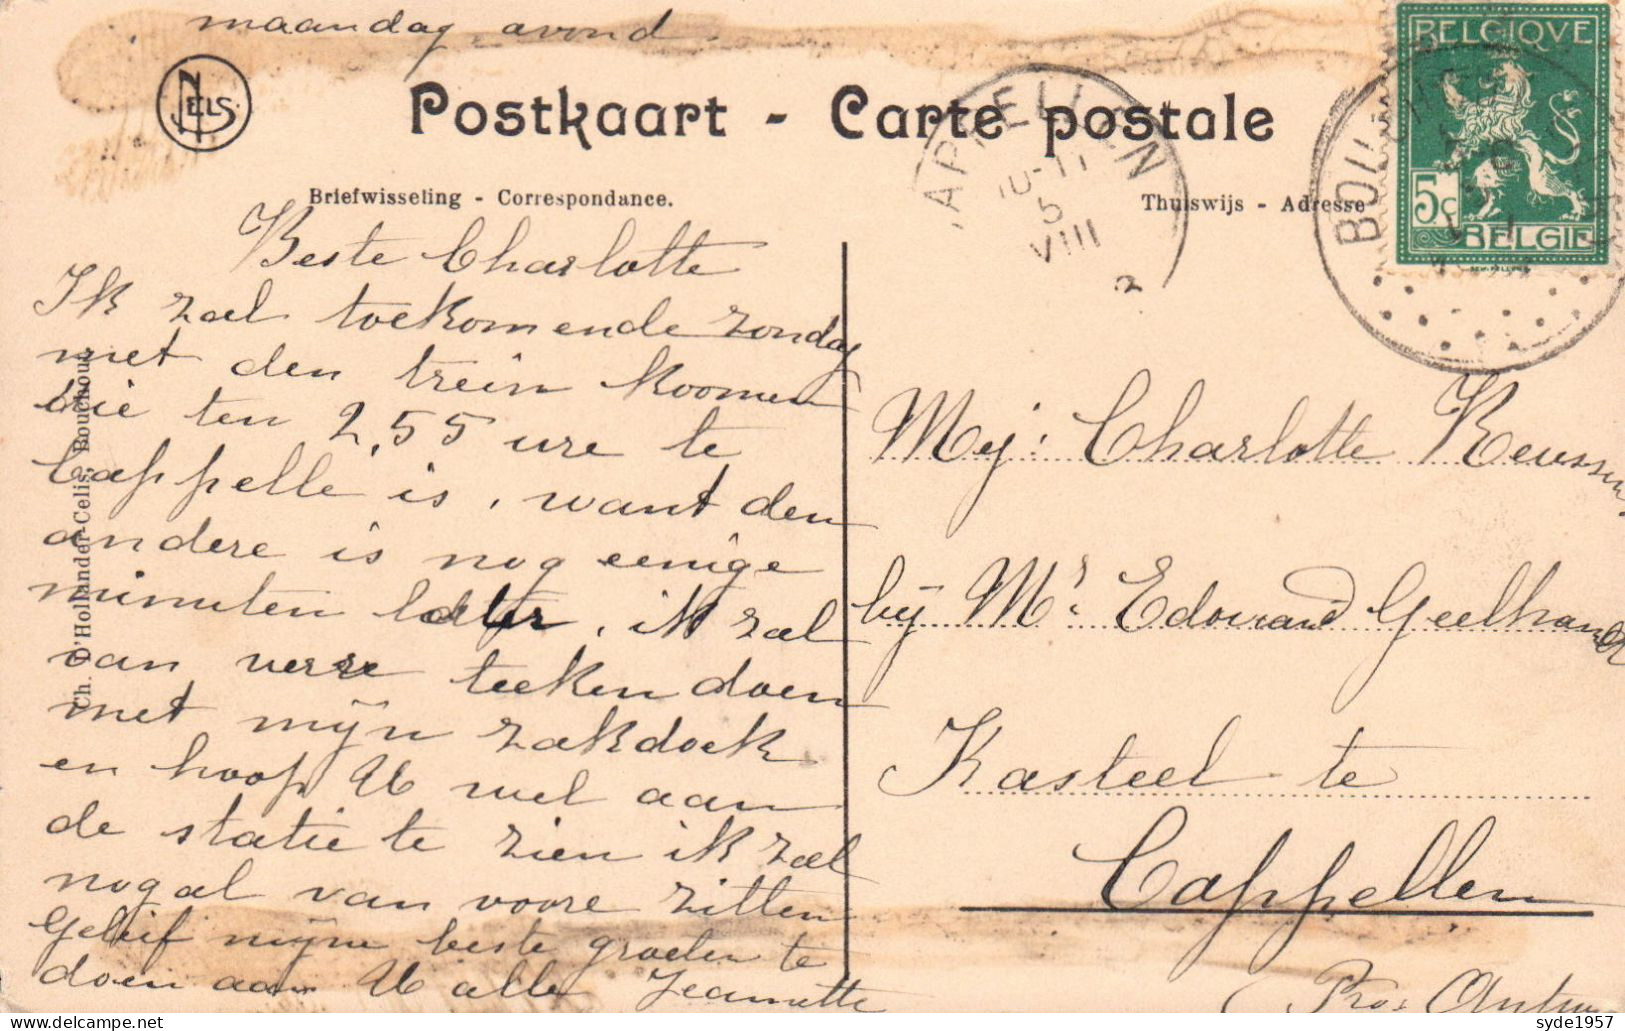 maandag avond
NELS
Postkaart - Carte postale
Briefwisseling - Correspondance.
Thuiswijs - Adresse
APPELLEN
10-11
5
VIII
2
BELGIQUE
5c
BELGIE
BOU
Beste Charlotte
Ik zal toekomende zondag
met den trein koomen
die ten 2,55 ure te
Cappelle is, want den
andere is nog eenige
minuten later, ik zal
van verre teeken doen
met mijn zakdoek
en hoop U wel aan
de statie te zien ik zal
nog al van voore zitten
Gelief mijne beste groeten te
doen aan U alle Jeannette
Ch. D'Hollander-Celis, Bouchout
Mej: Charlotte
bij Mr. Edouard Geelhand
Kasteel te
Cappellen
(Pro:
syde1957